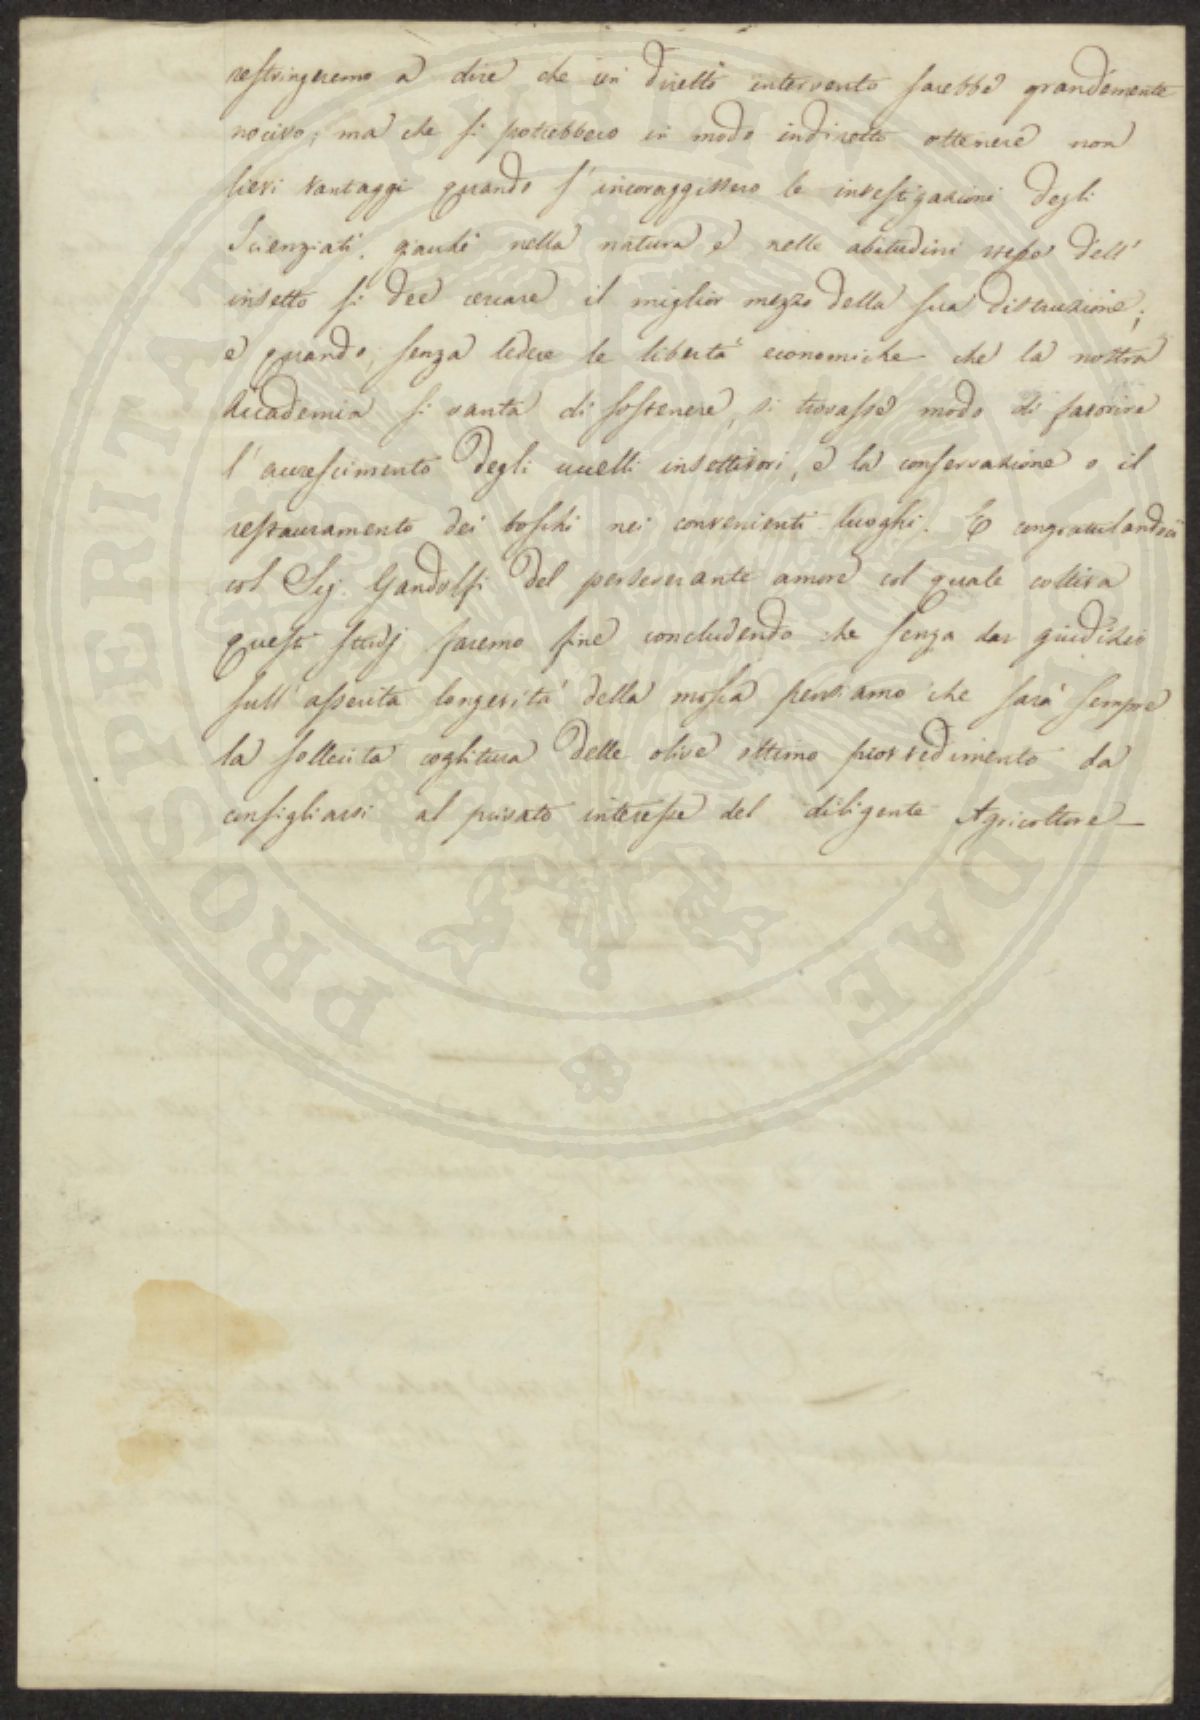 restringeremo a dire che un diretto intervento sarebbe grandemente
nocivo; ma che si potrebbero in modo indiretto ottenere non
lievi vantaggi quando s'incoraggissero le investigazioni degli
Scienziati, giacché nella natura e nelle abitudini stesse dell'
insetto si dee cercare il miglior mezzo della sua distruzione;
e quando, senza ledere le libertà economiche che la nostra
Accademia si vanta di sostenere, si trovasse modo di favorire
l'accrescimento degli uccelli insettivori, e la conservazione o il
restauramento dei boschi nei convenienti luoghi. E congratulandoci
col Sig. Gandolfi del perseverante amore col quale coltiva
questi studj faremo fine concludendo che senza dar giudizio
sull'asserita longevità della mosca pensiamo che sarà sempre
la sollecita coglitura delle olive ottimo provvedimento da
consigliarsi al privato interesse del diligente Agricoltore —
PROSPERITATI PUBLICAE AUGENDAE